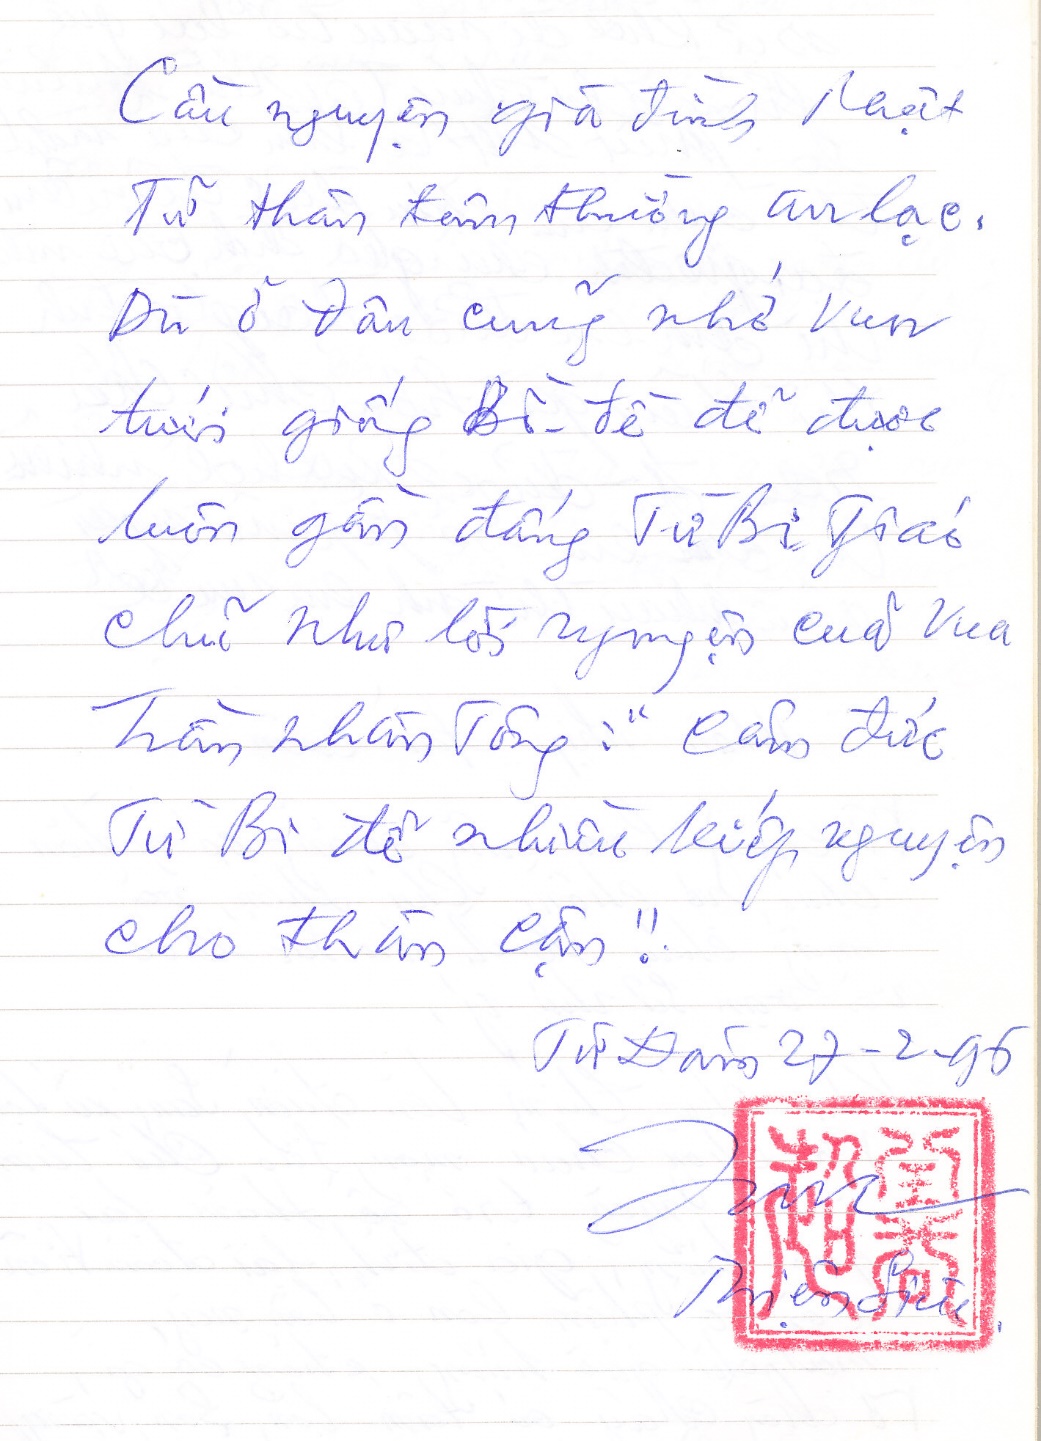 Cầu nguyện gia đình Nhật
Tử thân tâm thường an lạc.
Dù ở đâu cũng nhớ vun
tưới giống Bồ-đề để được
luôn gần đấng Từ Bi Giáo
chủ như lời nguyện của Vua
Trần Nhân Tông: "Cảm đức
Từ Bi để nhiều kiếp nguyện
cho thân cận!!
Từ Đàm 27-2-96
Thiện Siêu